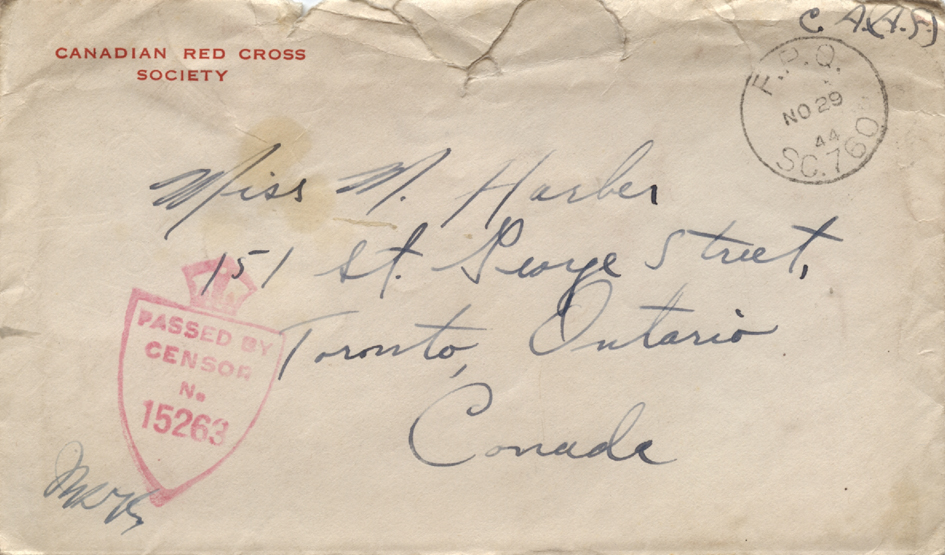 CANADIAN RED CROSS
SOCIETY
C. A. (A.S.)
F.P.O.
NO 29
44
SC. 760
Miss M. Harber
151 St. George Street,
Toronto, Ontario
Canada
PASSED BY
CENSOR
No
15263